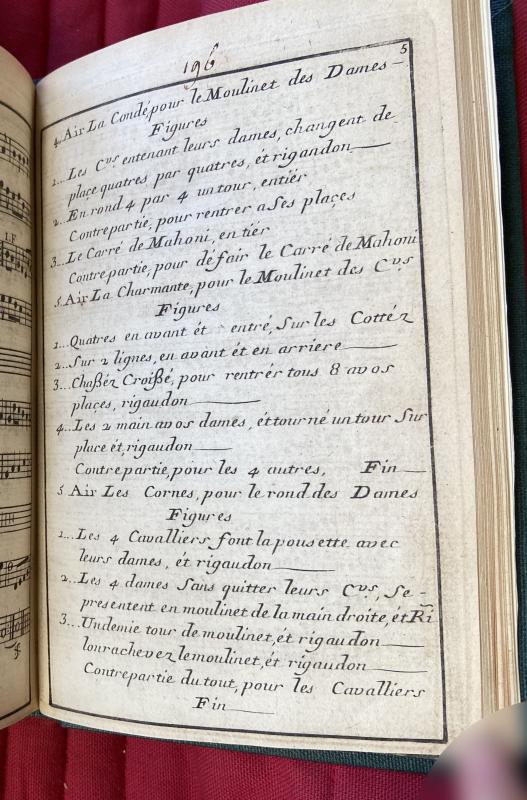 196
5
4. Air La Condé, pour le Moulinet des Dames—
Figures
1... Les C.vrs entenant leurs dames, changent de
place quatres par quatres, ét rigandon—
2... En rond 4 par 4 un tour, entiér
Contrepartie, pour rentrer a Ses plaçes
3... Le Carré de Mahoni, en tiér
Contrepartie, pour dé fair le Carré de Mahoni
5. Air La Charmante, pour le Moulinet des C.vrs
Figures
1... Quatres en avant ét entré, Sur les Cottéz
2... Sur 2 lignes, en avant ét en arriere—
3... Chaßéz Croißé, pour rentrér tous 8 avos
plaçes, rigaudon—
4... Les 2 main avos dames, ét tourné un tour Sur
place ét, rigaudon—
Contrepartie, pour les 4 autres, Fin—
5 Air Les Cornes, pour le rond des Dames
Figures
1... Les 4 Cavalliers font la pousette avec
leurs dames, ét rigaudon—
2... Les 4 dames Sans quitter leurs C.vrs, Se-
presentent en moulinet de la main droite, ét Ri
3... Undemie tour de moulinet, ét rigaudon—
lonrachevez le moulinet, ét rigaudon—
Contrepartie du tout, pour les Cavalliers
Fin—
LE